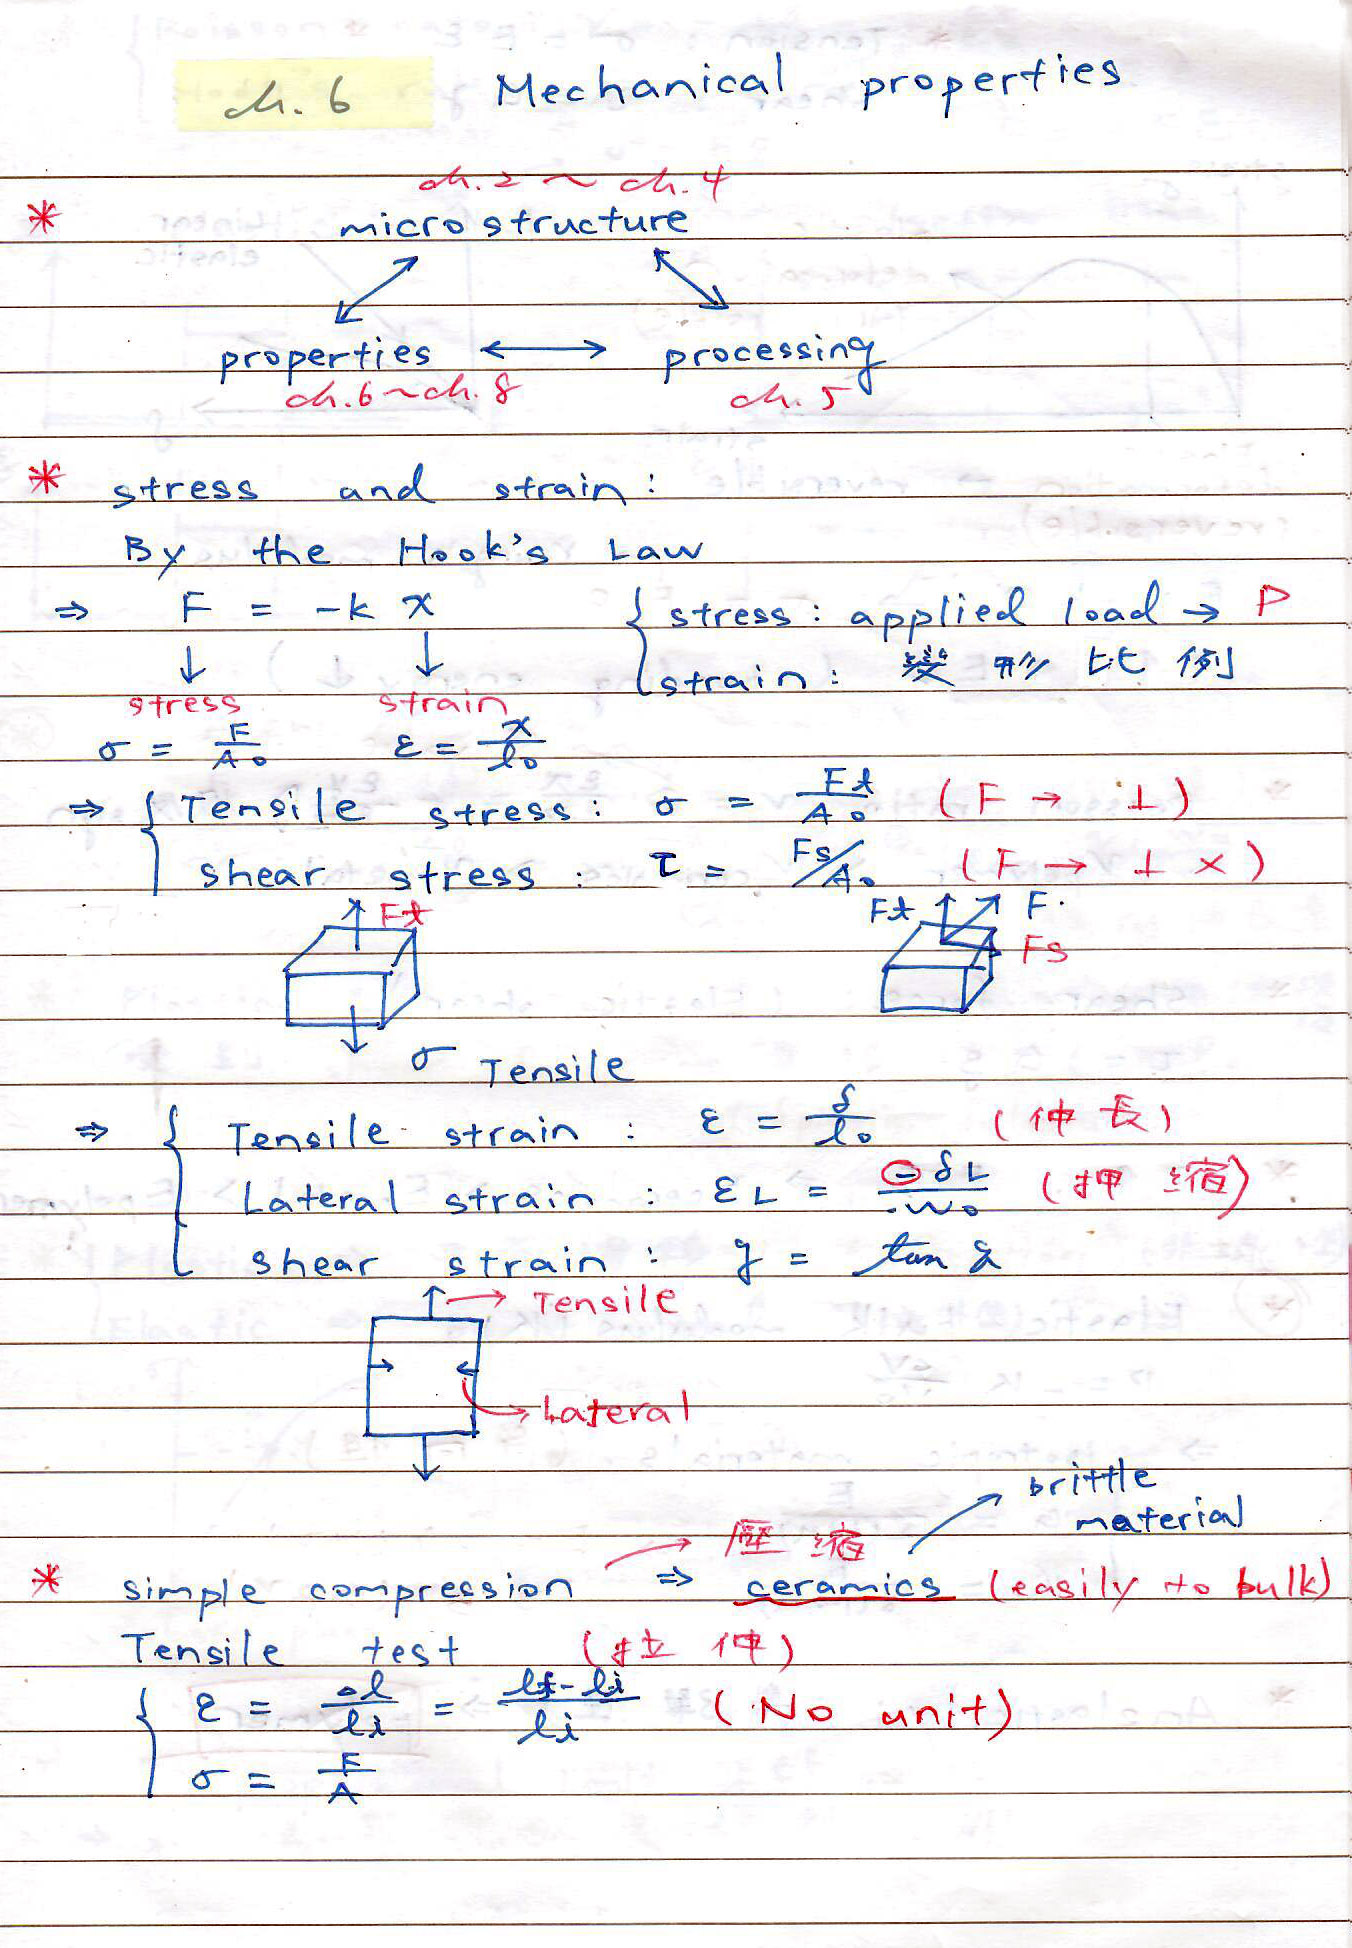 ch. 6 Mechanical properties
ch.2 ~ ch.4
* microstructure
properties ↔ processing
ch.6~ch.8 ch.5
* stress and strain:
By the Hook's Law
⇒ F = -k x { stress: applied load → P
↓ ↓ strain: 變形比例
stress strain
σ = F/A₀ ε = x/l₀
⇒ { Tensile stress: σ = Ft/A₀ (F → ⊥)
shear stress: τ = Fs/A₀ (F → ⊥ ×)
Ft Ft F
Fs
σ Tensile
⇒ { Tensile strain: ε = δ/l₀ (伸長)
Lateral strain: εL = -δL/w₀ (押縮)
shear strain: γ = tan
→ Tensile
→ Lateral
brittle
material
壓縮
* simple compression ⇒ ceramics (easily to bulk)
Tensile test (拉伸)
{ ε = △l/li = lf-li/li (No unit)
σ = F/A